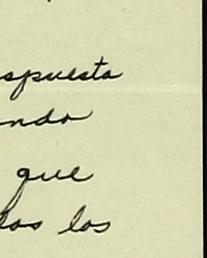 spuesta
ndo
que
los los